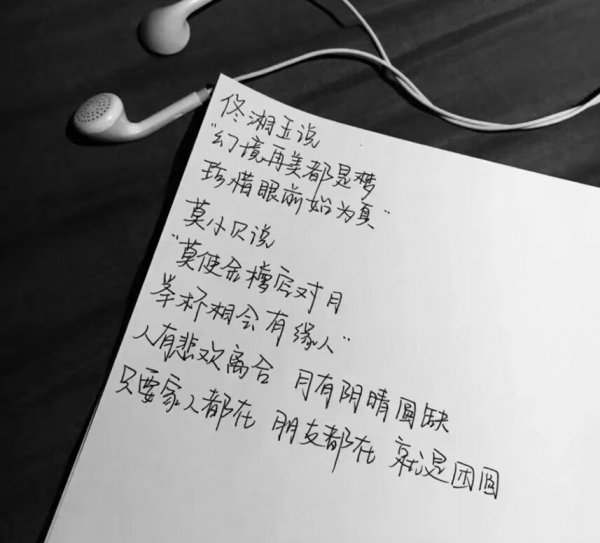 佟湘玉说
"幻境再美都是梦
珍惜眼前始为真"
莫小贝说
"莫使金樽空对月
举杯相会有缘人"
人有悲欢离合 月有阴晴圆缺
只要家人都在 朋友都在 就是团圆